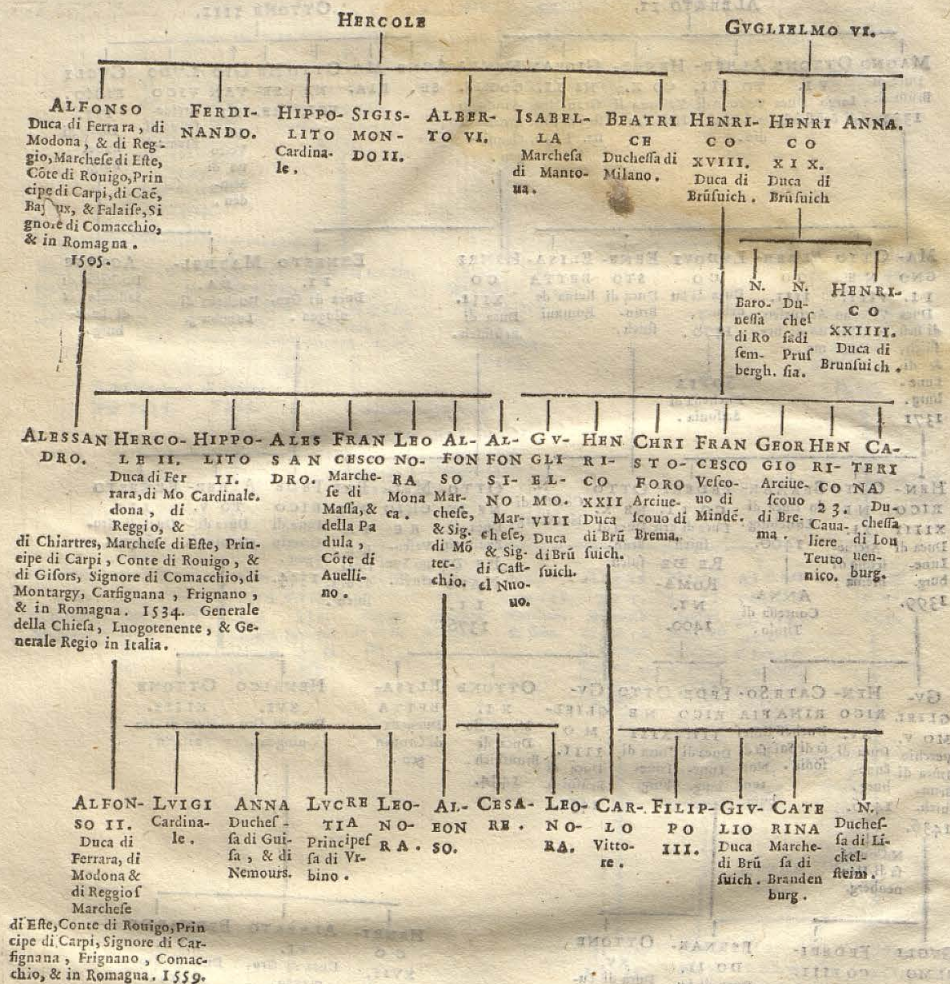 HERCOLE
GVGLIELMO VI.
ALFONSO
Duca di Ferrara, di
Modona, & di Reg-
gio, Marchese di Este,
Côte di Rouigo, Prin
cipe di Carpi, di Caẽ,
& Falaise, Si
gnore di Comacchio,
& in Romagna.
1505.
FERDI-
NANDO.
HIPPO-
LITO
Cardina-
le.
SIGIS-
MON-
DO II.
ALBER-
TO VI.
ISABEL-
LA
Marchesa
di Manto-
ua.
BEATRI
CE
Duchessa di
Milano.
HENRI-
CO
XVIII.
Duca di
Brũsuich.
HENRI
CO
XIX.
Duca di
Brũsuich
ANNA.
N.
Baro-
nessa
di Ro
sem-
bergh.
N.
Du-
ches
sa di
Prus
sia.
HENRI-
CO
XXIIII.
Duca di
Brunsuich.
ALESSAN
DRO.
HERCO-
LE II.
Duca di Fer
rara, di Mo
dona, di
Reggio, &
di Chiartres, Marchese di Este, Prin-
cipe di Carpi, Conte di Rouigo, &
di Gisors, Signore di Comacchio, di
Montargy, Carfignana, Frignano,
& in Romagna. 1534. Generale
della Chiesa, Luogotenente, & Ge-
nerale Regio in Italia.
HIPPO-
LITO
II.
Cardinale.
ALES
SAN
DRO.
FRAN
CESCO
Marche-
se di
Massa, &
della Pa
dula,
Côte di
Auelli-
no.
LEO
NO-
RA
Mona
ca.
AL-
FON
SO
Mar-
chese,
& Sig.
di Mõ
tec-
chio.
AL-
FON
SI-
NO
Mar-
chese,
& Sig.
di Cast-
el Nuo-
uo.
GV-
GLI
EL-
MO.
VIII
Duca
di Brũ
suich.
HEN
RI-
CO
XXII
Duca
di Brũ
suich.
CHRI
STO-
FORO
Arciue-
scouo di
Brema.
FRAN
CESCO
Vesco-
uo di
Mindẽ.
GEOR
GIO
Arciue-
scouo
di Bre-
ma.
HEN
RI-
CO
23.
Caua-
liere
Teuto
nico.
CA-
TERI
NA
Du-
chessa
di Lou
uen-
burg.
ALFON-
SO II.
Duca di
Ferrara, di
Modona &
di Reggio,
Marchese
di Este, Conte di Rouigo, Prin
cipe di Carpi, Signore di Car-
fignana, Frignano, Comac-
chio, & in Romagna. 1559.
LVIGI
Cardina-
le.
ANNA
Duches-
sa di Gui-
sa, & di
Nemours.
LVCRE
TIA
Principes
sa di Vr-
bino.
LEO-
NO-
RA.
AL-
EON
SO.
CESA-
RE.
LEO-
NO-
RA.
CAR-
LO
Vitto-
re.
FILIP-
PO
III.
GIV-
LIO
Duca
di Brũ
suich.
CATE
RINA
Marche-
sa di
Branden
burg.
N.
Duches-
sa di Li-
ckel-
steim.